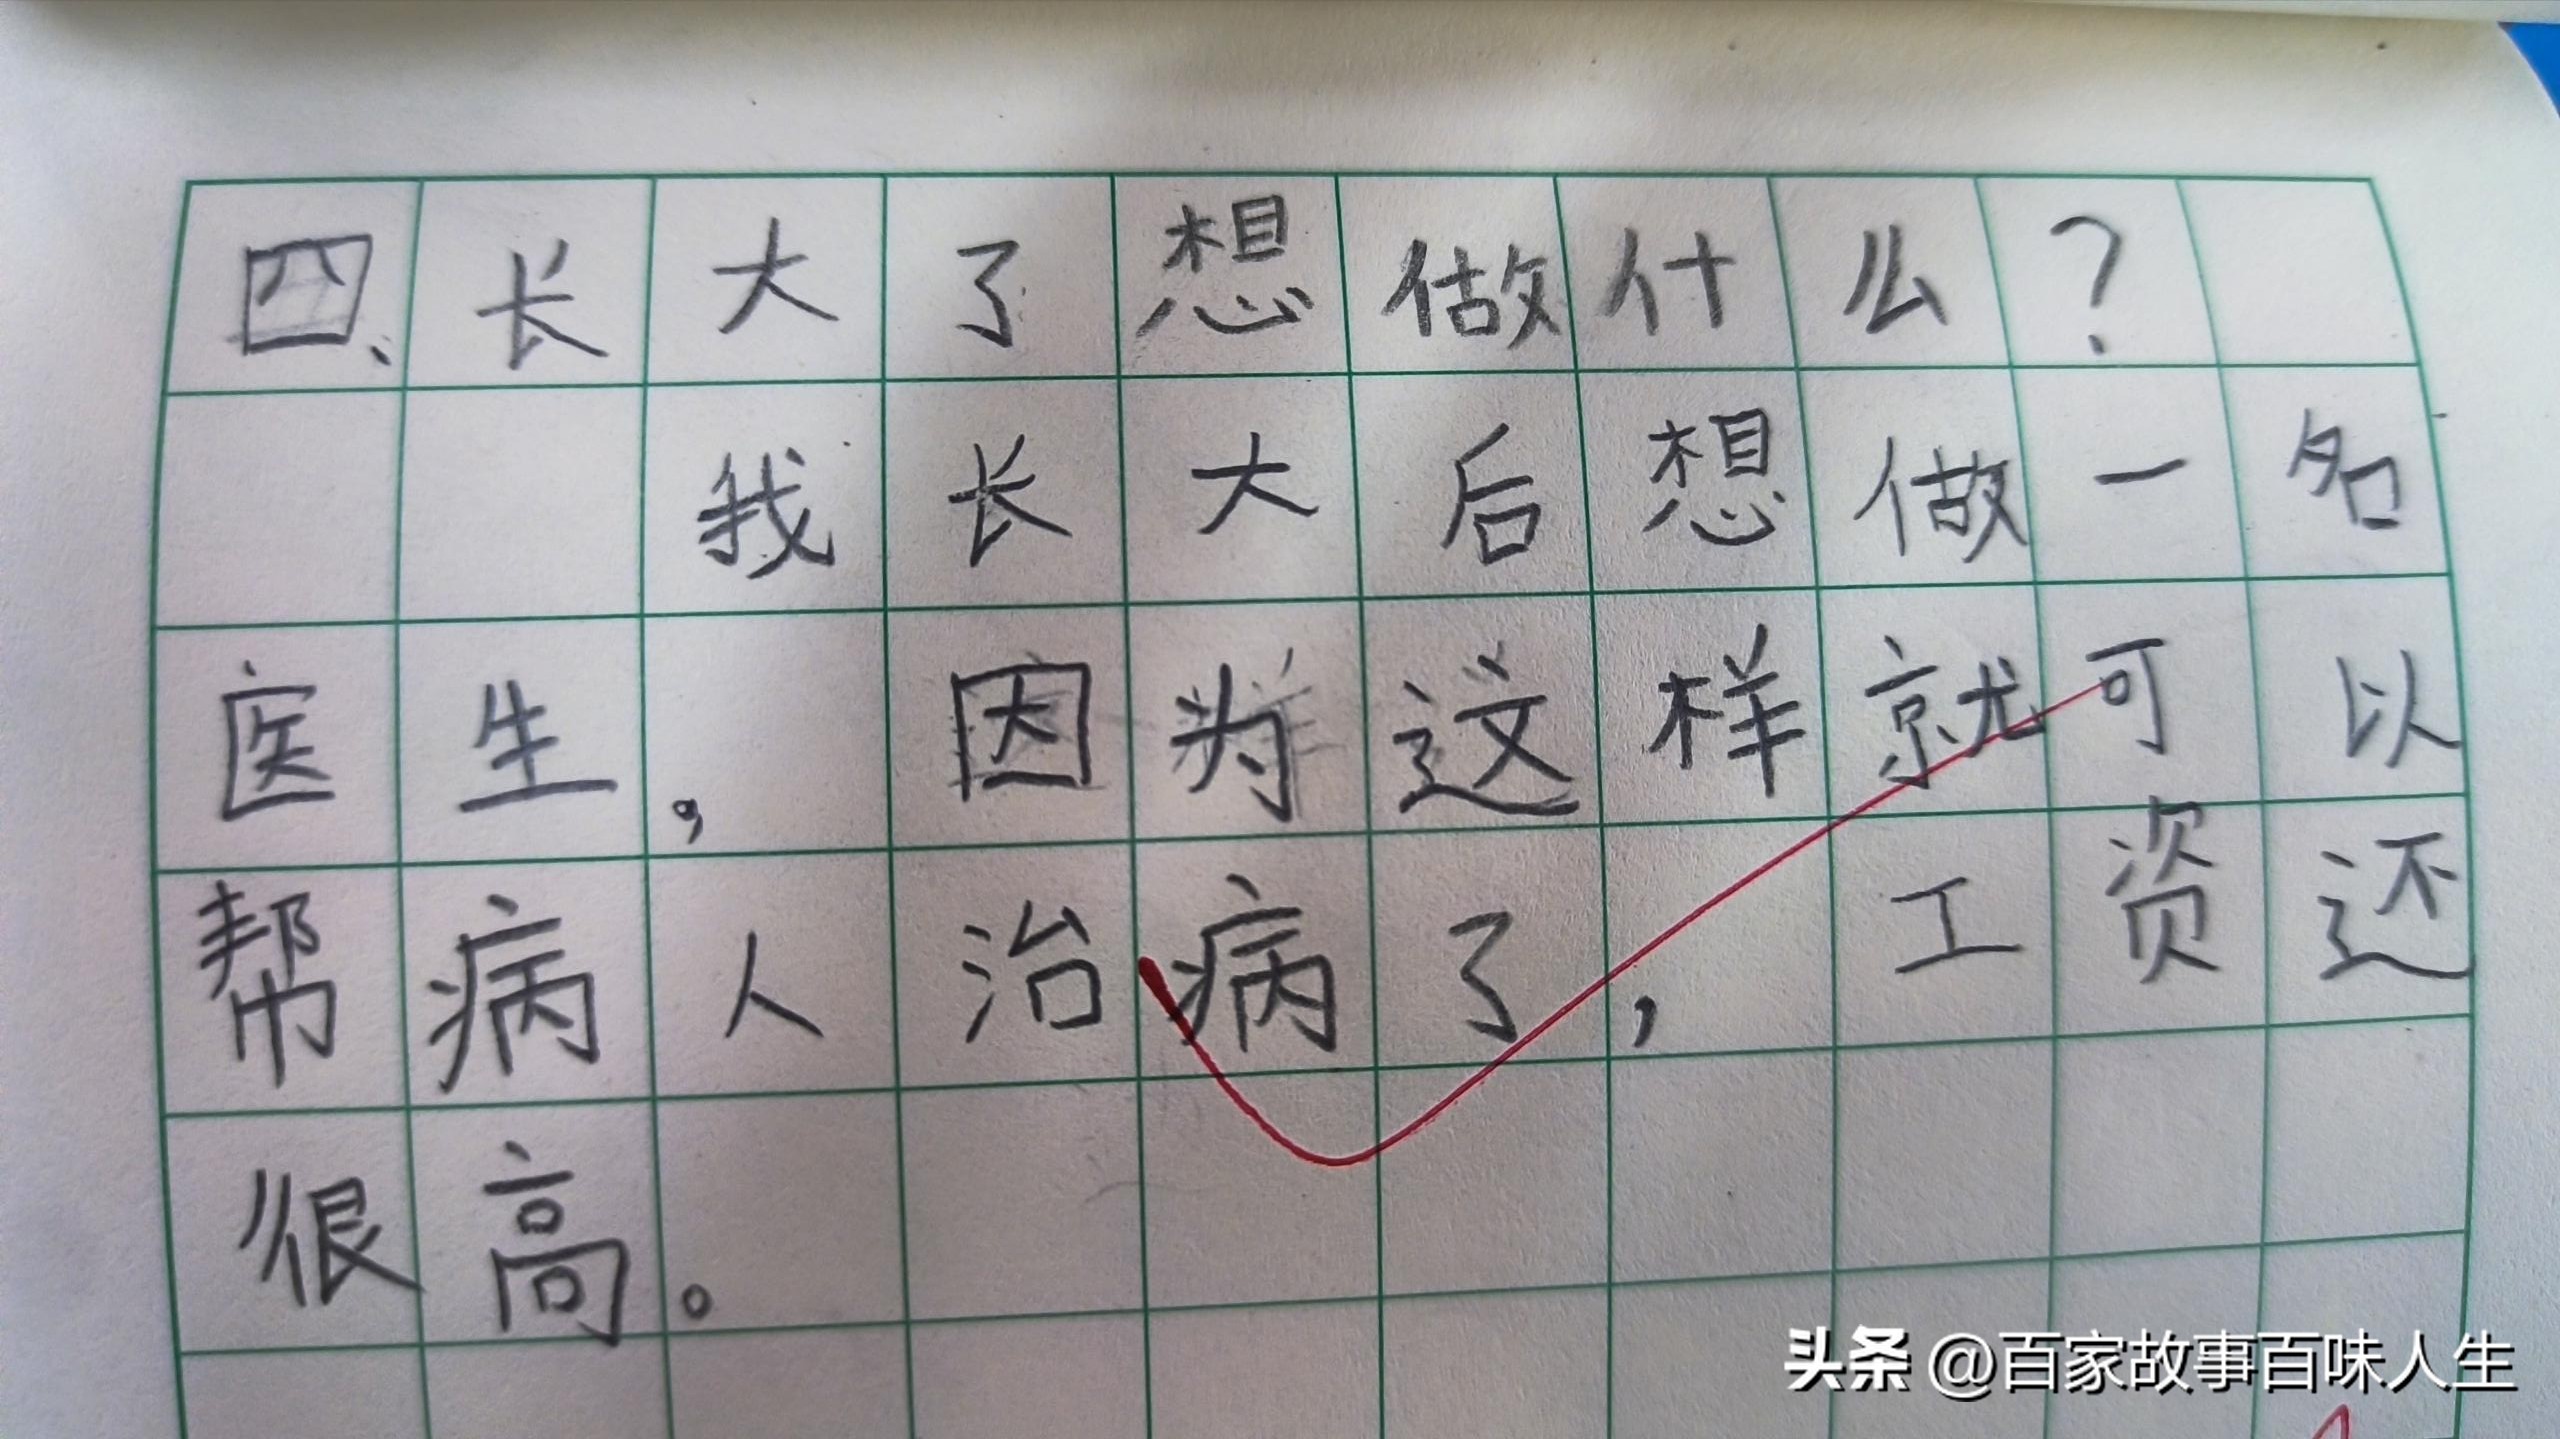 四、长大了想做什么？
我长大后想做一名
医生，因为这样就可以
帮病人治病了，工资还
很高。
头条 @百家故事百味人生